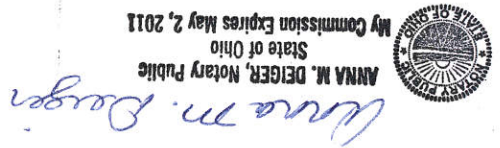 Anna M. Deiger
ANNA M. DEIGER, Notary Public
State of Ohio
My Commission Expires May 2, 2011
NOTARY PUBLIC
STATE OF OHIO